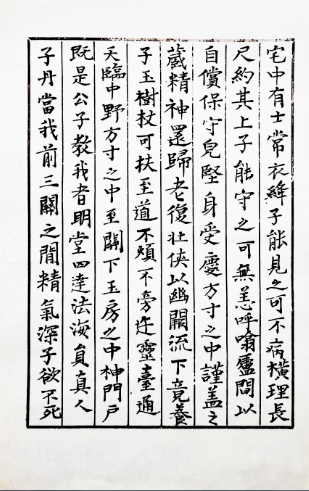 宅中有士常衣絳子能見之可不病橫理長
尺約其上子能守之可無恙呼噏廬間以
自償保守皃堅身受慶方寸之中謹蓋之
藏精神還歸老復壯俠以幽關流下竟養
子玉樹杖可扶至道不煩不旁迕靈臺通
天臨中野方寸之中至關下玉房之中神門戶
既是公子教我者明堂四達法海員真人
子丹當我前三關之間精氣深子欲不死